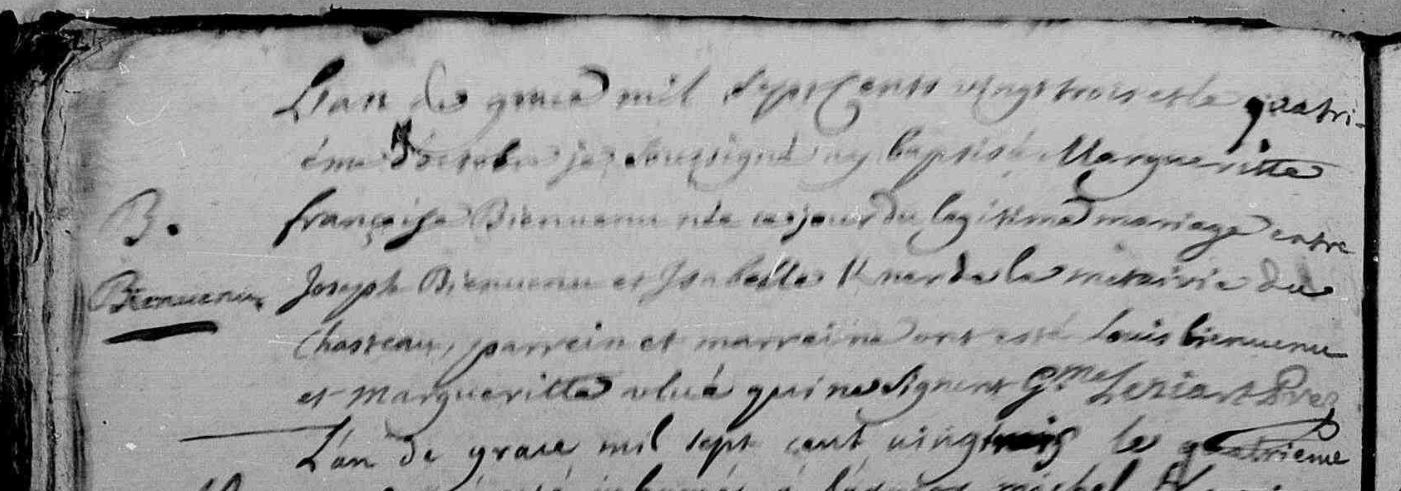 L'an de grace mil sept Cents vingt trois et le quatri-
éme d'octobre je soussigné ay baptisé Margueritte
B. françoise Bienuenu née ce jour du legitime mariage entre
Bienuenu Joseph Bienuenu et Isabelle de la metairie du
Chasteau, parrein et marreine ont esté Louis bienuenu
et Margueritte qui ne signent G.me
L'an de grace mil sept cent vingt trois le quatrieme
michel